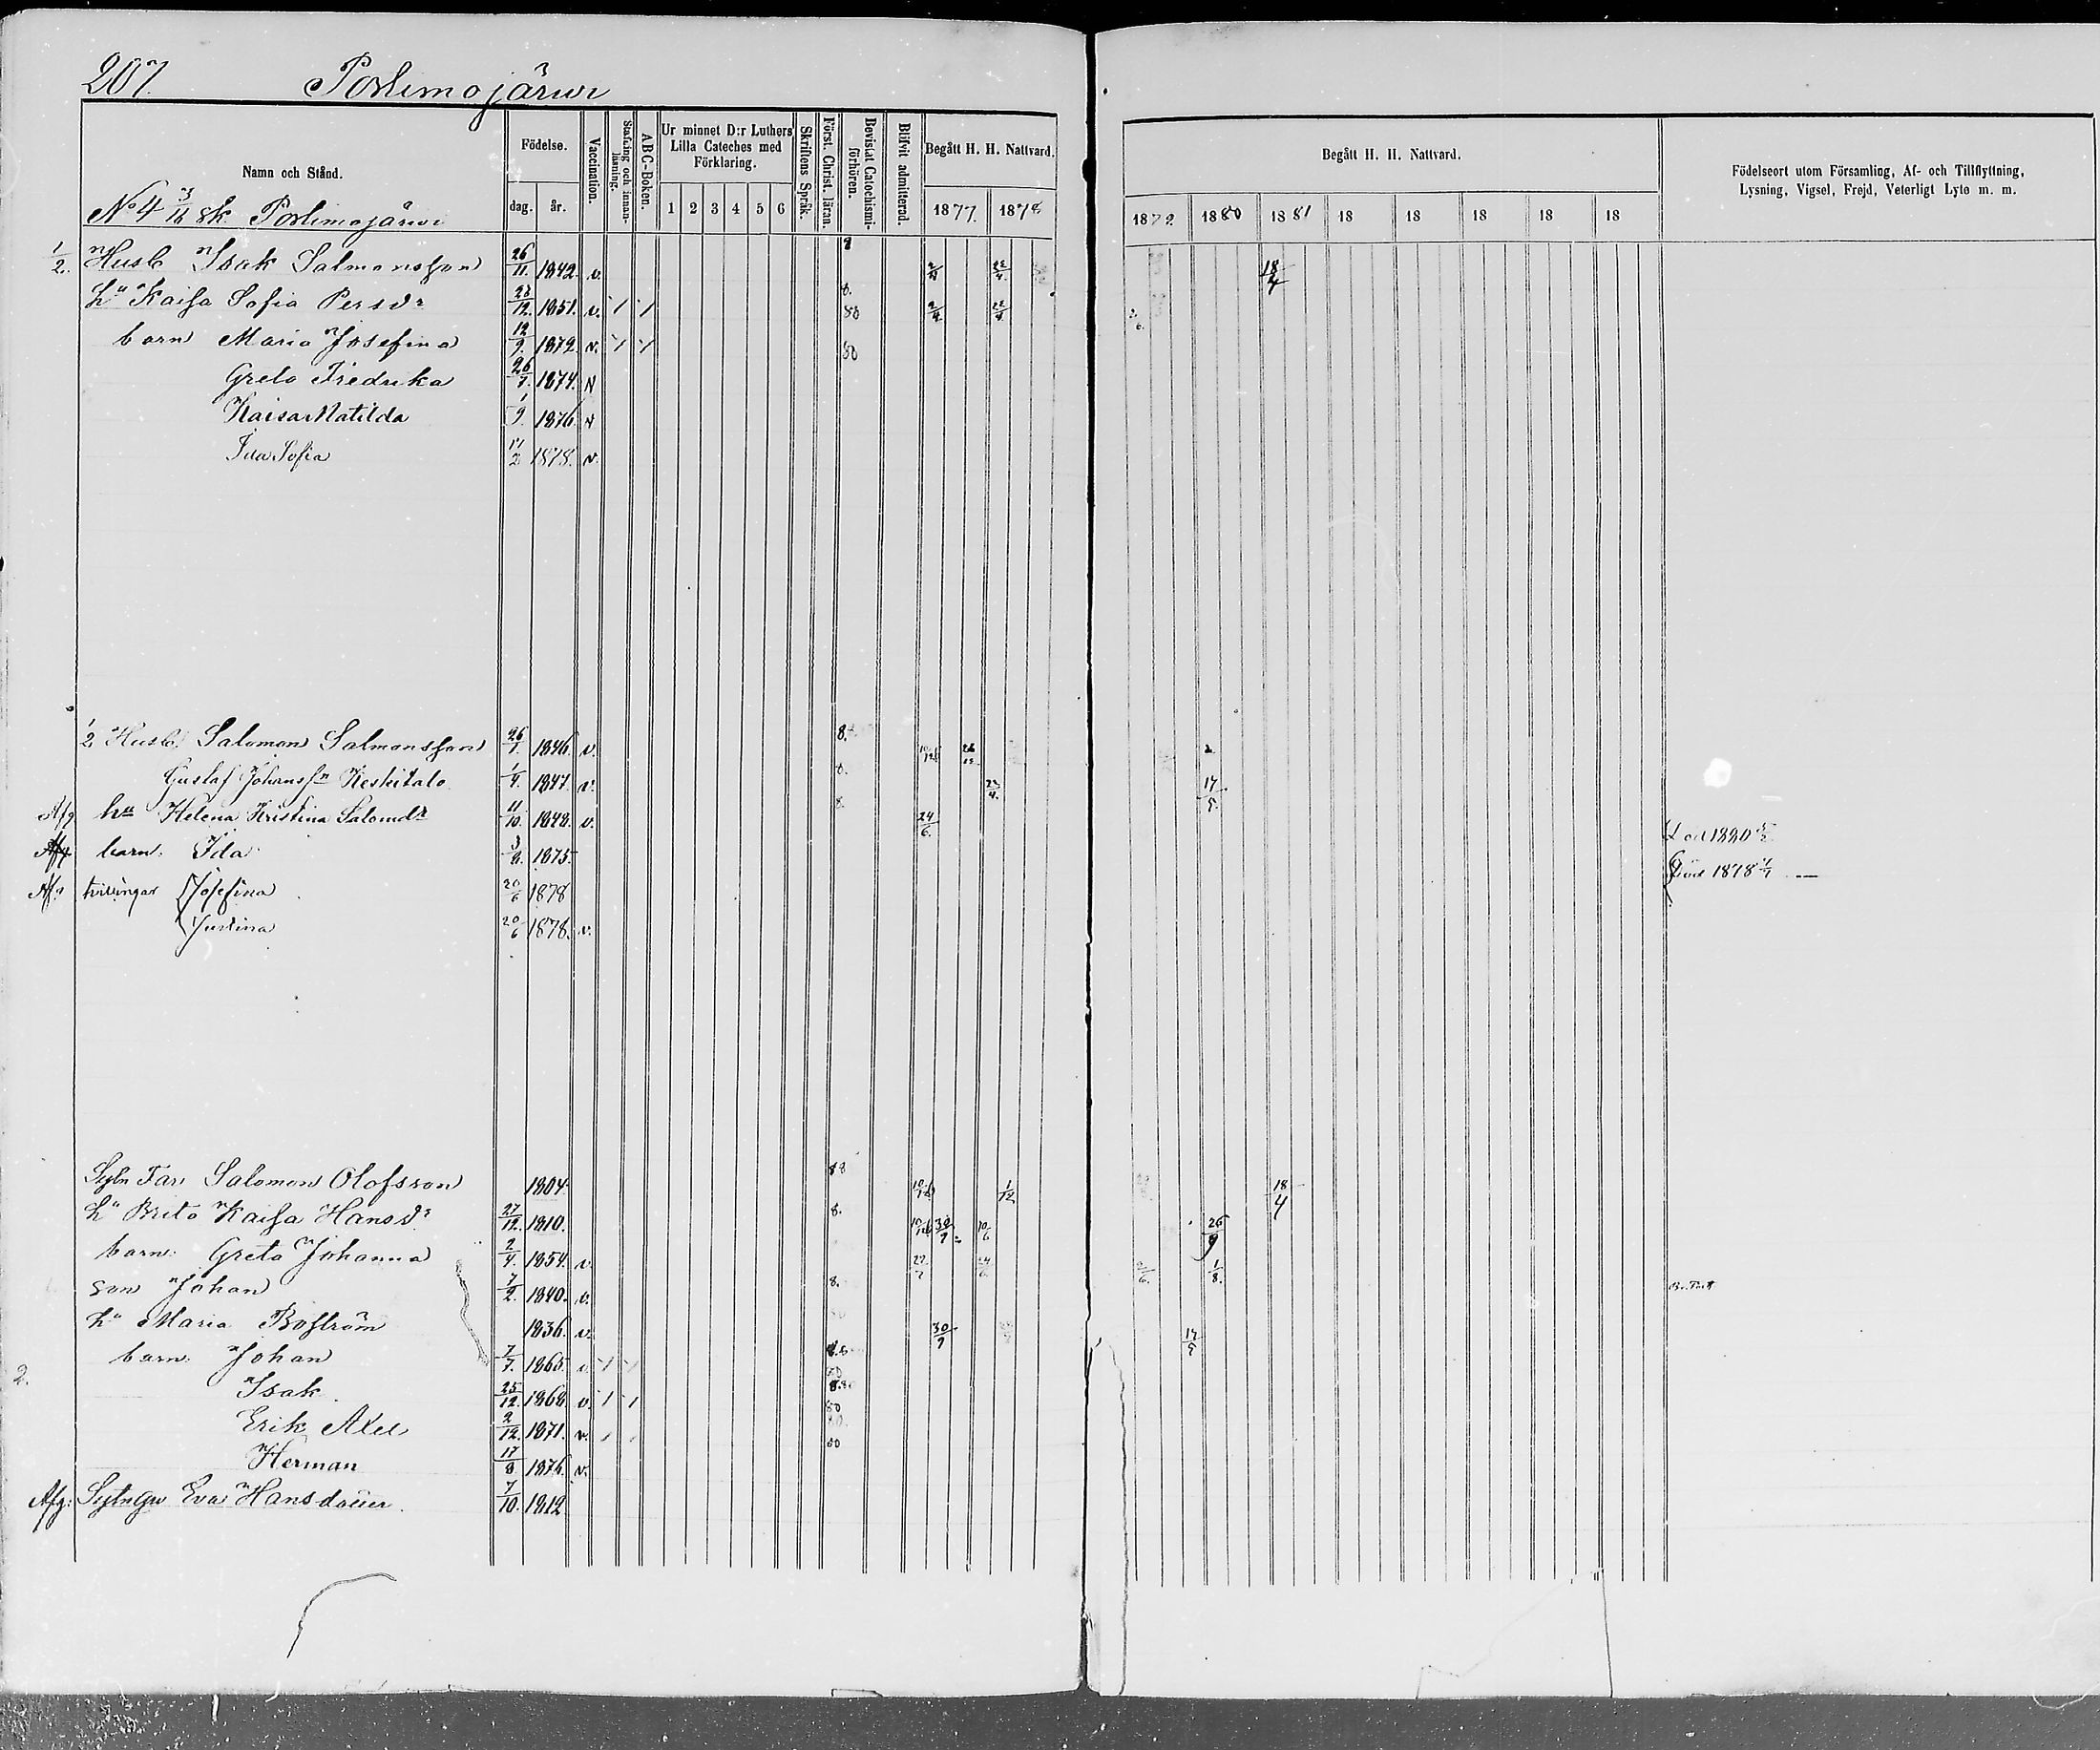 207. Portimojärvi
Namn och Stånd. Födelse. dag. år. Vaccination. Stafning och innanläsning. ABC-Boken. Ur minnet D:r Luthers Lilla Cateches med Förklaring. 1 2 3 4 5 6 Skriftens Språk. Först. Christ. läran. Bevistat Catechismi-förhören. Blifvit admitterad. Begått H. H. Nattvard. 1877. 1878
Begått H. H. Nattvard. 1879. 1880 1881 18 18 18 18 18
Födelseort utom Församling, Af- och Tillflyttning, Lysning, Vigsel, Frejd, Veterligt Lyte m. m.
No 4 3/16 sk. Portimojärvi
1/2. Husb Isak Salmonsson 26/11. 1842. v. 2/4 22/4 18/4
hu Kaisa Sofia Persdr 28/12. 1851. v. 80 2/4 22/4
barn Maria Josefina 12/9. 1872. v. 80
Greta Fredrika 26/7. 1874. v
Kaisa Matilda 1/9. 1876 v
Ida Sofia 17/2 1878. v.
1/2 Husb. Salomon Salmonsson 26/7. 1846. v. 8.
Gustaf Johanssn Keskitalo 1/4. 1847. v. 8. 22/4. 17/5.
Afg hu Helena Kristina Salomdr 11/10. 1848. v. 8. 24/6. Död 1880
Afg barn. Ida 3/8. 1875. Död 1878
Af. tvillingar Josefina 20/6 1878
Justina 20/6 1878. v.
Sytn Far Salomon Olofsson 1804. 1/12 18/4
hu Brita Kaisa Hansdr 27/12. 1810. 8. 30/9 10/6 26/9
barn: Greta Johanna 2/4. 1854. v. 1/8.
son Johan 7/2. 1840. v. 8.
hu Maria Boström 1836. v. 30/9 17/5
barn. Johan 7/7. 1865. v
2. Isak 25/12. 1868. v. 80
Erik Axel 2/12. 1871. v. 80
Herman 17/8 1876. v.
Afg: Sytn Gu Eva Hansdotter. 7/10. 1812